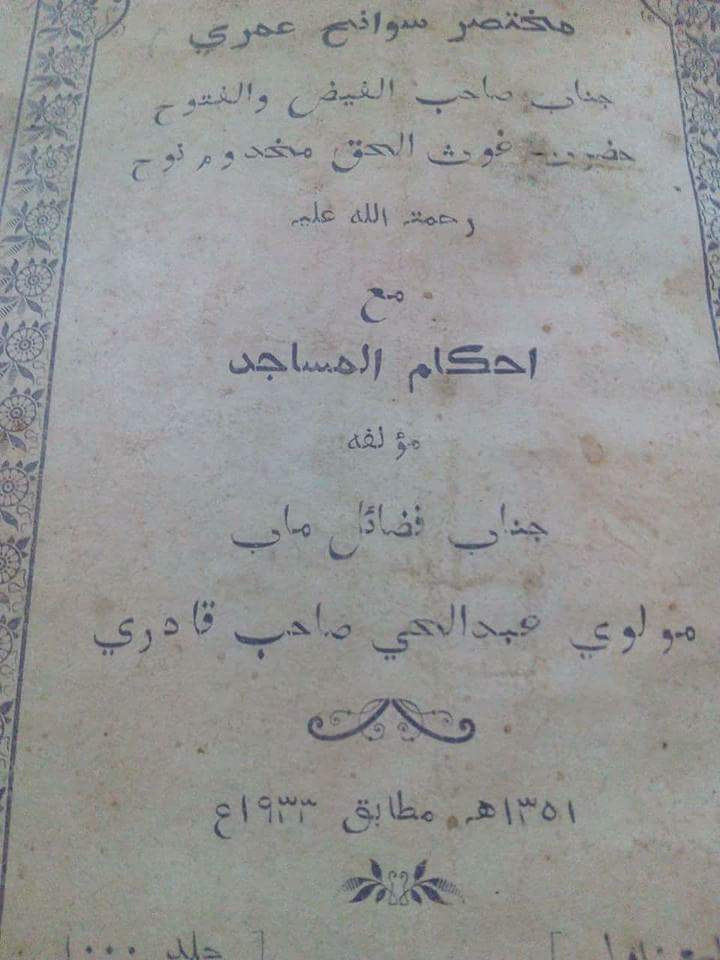 مختصر سوانح عمري
جناب صاحب الفيض والفتوح
حضرت غوث الحق مخدوم نوح
رحمته الله عليه
مع
احكام المساجد
مؤلفه
جناب فضائل ماب
مولوي عبدالحي صاحب قادري
۱۳۵۱ھ مطابق ۱۹۳۳ع
[ جلد ۱۰۰۰